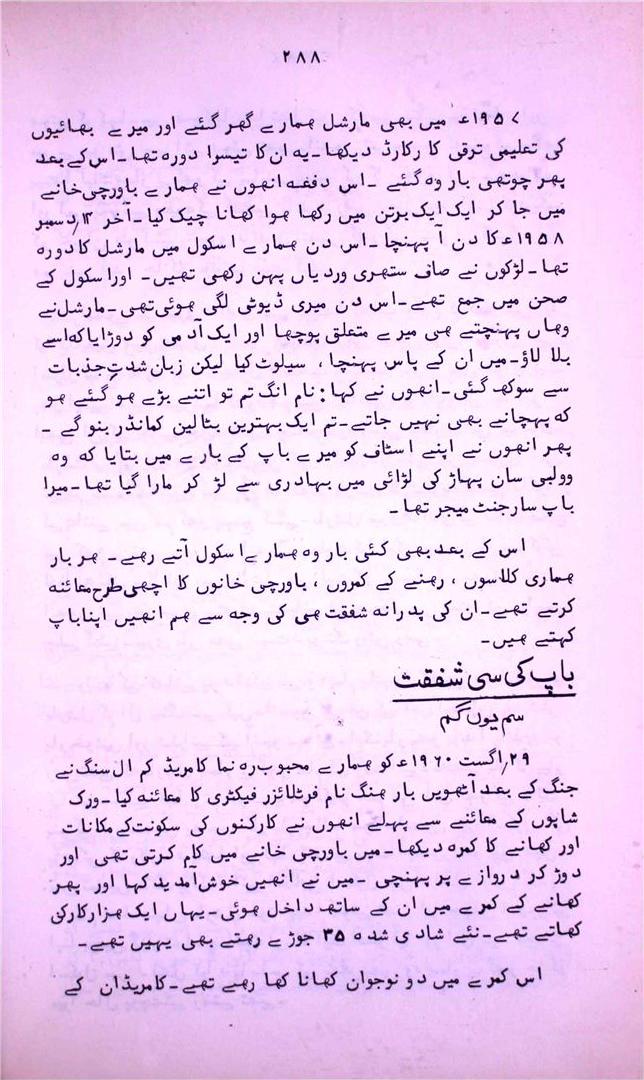 ۲۸۸
۱۹۵۷ء میں بھی مارشل ھمارے گھر گئے اور میرے بھائیوں
کی تعلیمی ترقی کا رکارڈ دیکھا۔یہ ان کا تیسرا دورہ تھا۔اس کے بعد
پھر چوتھی بار وہ گئے ۔اس دفعہ انھوں نے ھمارے باورچی خانے
میں جا کر ایک ایک برتن میں رکھا ھوا کھانا چیک کیا۔آخر ۱۳؍دسمبر
۱۹۵۸ء کا دن آ پہنچا۔اس دن ھمارے اسکول میں مارشل کا دورہ
تھا۔لڑکوں نے صاف ستھری وردیاں پہن رکھی تھیں۔ اور اسکول کے
صحن میں جمع تھے۔اس دن میری ڈیوٹی لگی ھوئی تھی۔مارشل نے
وھاں پہنچتے ھی میرے متعلق پوچھا اور ایک آدمی کو دوڑایا کہ اسے
بلا لاؤ۔میں ان کے پاس پہنچا، سیلوٹ کیا لیکن زبان شدتِ جذبات
سے سوکھ گئی۔انھوں نے کہا: نام انگ تم تو اتنے بڑے ھو گئے ھو
کہ پہچانے بھی نہیں جاتے۔تم ایک بہترین بٹالین کمانڈر بنو گے ۔
پھر انھوں نے اپنے اسٹاف کو میرے باپ کے بارے میں بتایا کہ وہ
وولبی سان پہاڑ کی لڑائی میں بہادری سے لڑ کر مارا گیا تھا۔میرا
باپ سارجنٹ میجر تھا۔
اس کے بعد بھی کئی بار وہ ھمارے اسکول آتے رھے۔ ھر بار
ھماری کلاسوں ، رھنے کے کمروں ، باورچی خانوں کا اچھی طرح معائنہ
کرتے تھے۔ان کی پدرانہ شفقت ھی کی وجہ سے ھم انھیں اپنا باپ
کہتے ھیں۔
باپ کی سی شفقت
سم یوں گم
۲۹؍اگست ۱۹۶۰ء کو ھمارے محبوب رہ نما کامریڈ کم ال سنگ نے
جنگ کے بعد آٹھویں بار ھنگ نام فرٹلائزر فیکٹری کا معائنہ کیا۔ورک
شاپوں کے معائنے سے پہلے انھوں نے کارکنوں کی سکونت کے مکانات
اور کھانے کا کمرہ دیکھا۔میں باورچی خانے میں کام کرتی تھی اور
دوڑ کر دروازے پر پہنچی ۔میں نے انھیں خوش آمدید کہا اور پھر
کھانے کے کمرے میں ان کے ساتھ داخل ھوئی۔یہاں ایک ھزار کارکن
کھاتے تھے۔نئے شادی شدہ ۳۵ جوڑے رھتے بھی یہیں تھے۔
اس کمرے میں دو نوجوان کھانا کھا رھے تھے۔کامریڈان کے